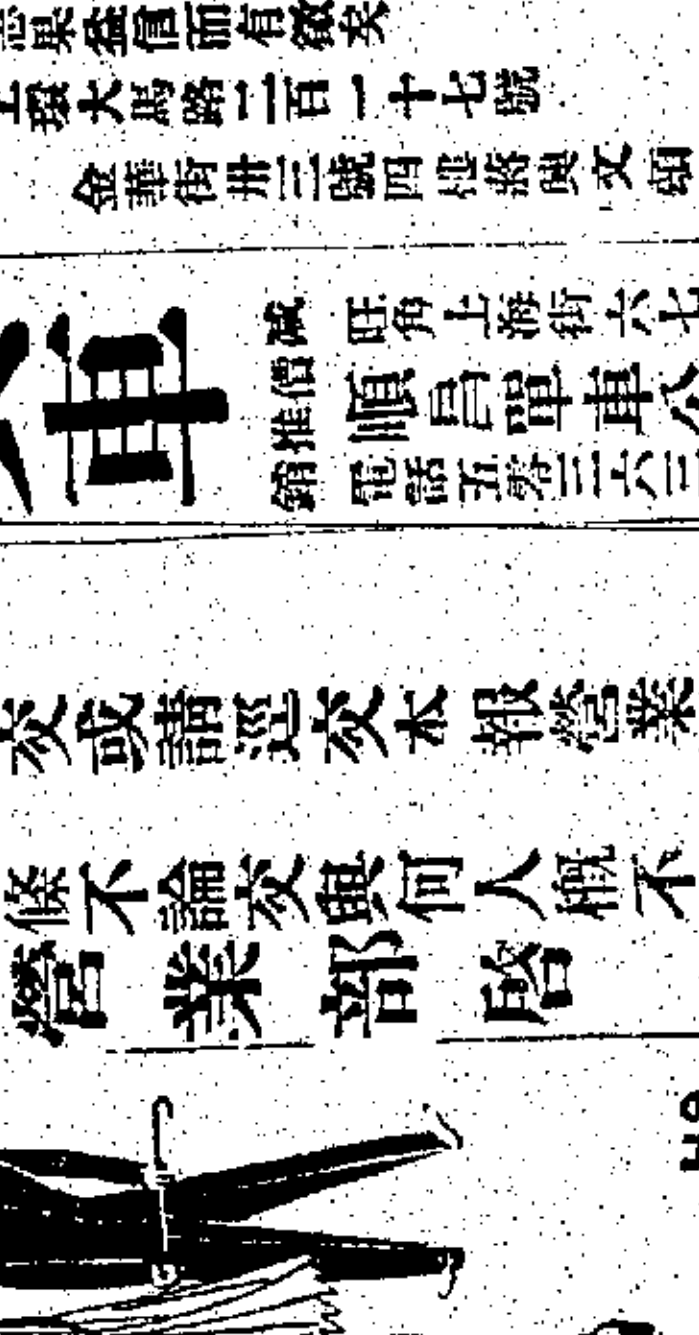 信而有徵矣
上環大馬路二百一十七號
金華街卅三號四樓蔣文
車
減價推銷
旺角上海街六七
順昌單車公
電話五零三六三
交或請逕交本報營業
條不論交與何人概不
營業部啓